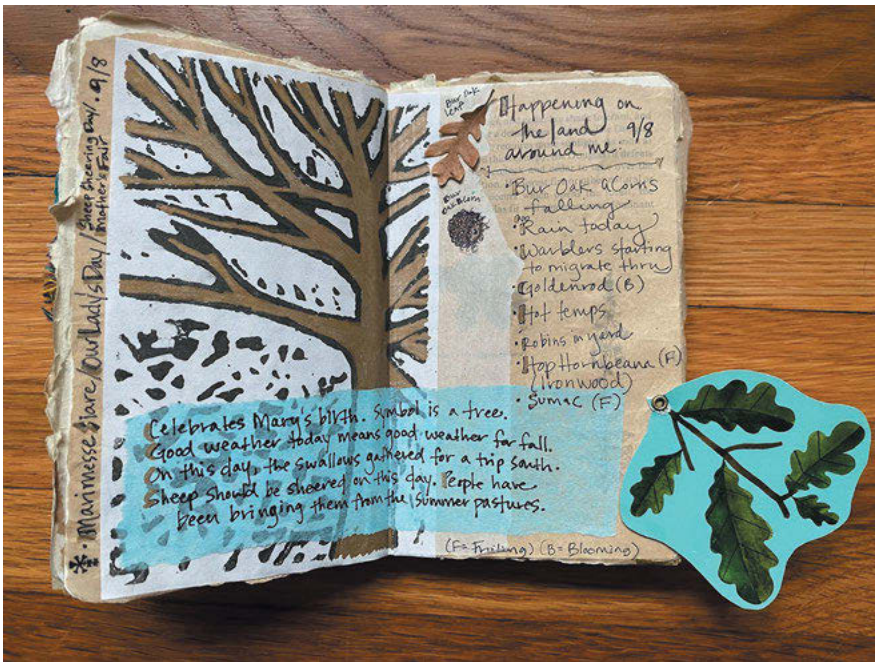 Marimesse Slare / Our Lady's Day / Sheep Sheering Day / • 9/8
Mother's Fair
Celebrates Mary's birth. Symbol is a tree.
Good weather today means good weather for fall.
On this day, the swallows gathered for a trip south.
Sheep should be sheered on this day. People have
been bringing them from the summer pastures.
Bur Oak
Leaf
Bur
Oak Acorn
Happening on
the land 9/8
around me:
• Bur Oak acorns
falling
• Rain today
• Warblers starting
to migrate thru
• Goldenrod (B)
• Hot temps
• Robins in yard
• Hop Hornbeana (F)
(Ironwood)
• Sumac (F)
(F = Fruiting) (B = Blooming)